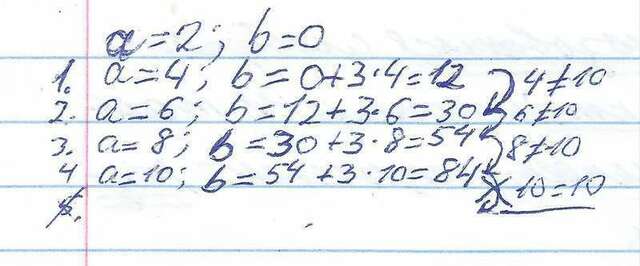 a=2; b=0
1. a=4; b=0+3·4=12 4≠10
2. a=6; b=12+3·6=30 6≠10
3. a=8; b=30+3·8=54 8≠10
4 a=10; b=54+3·10=84 10=10